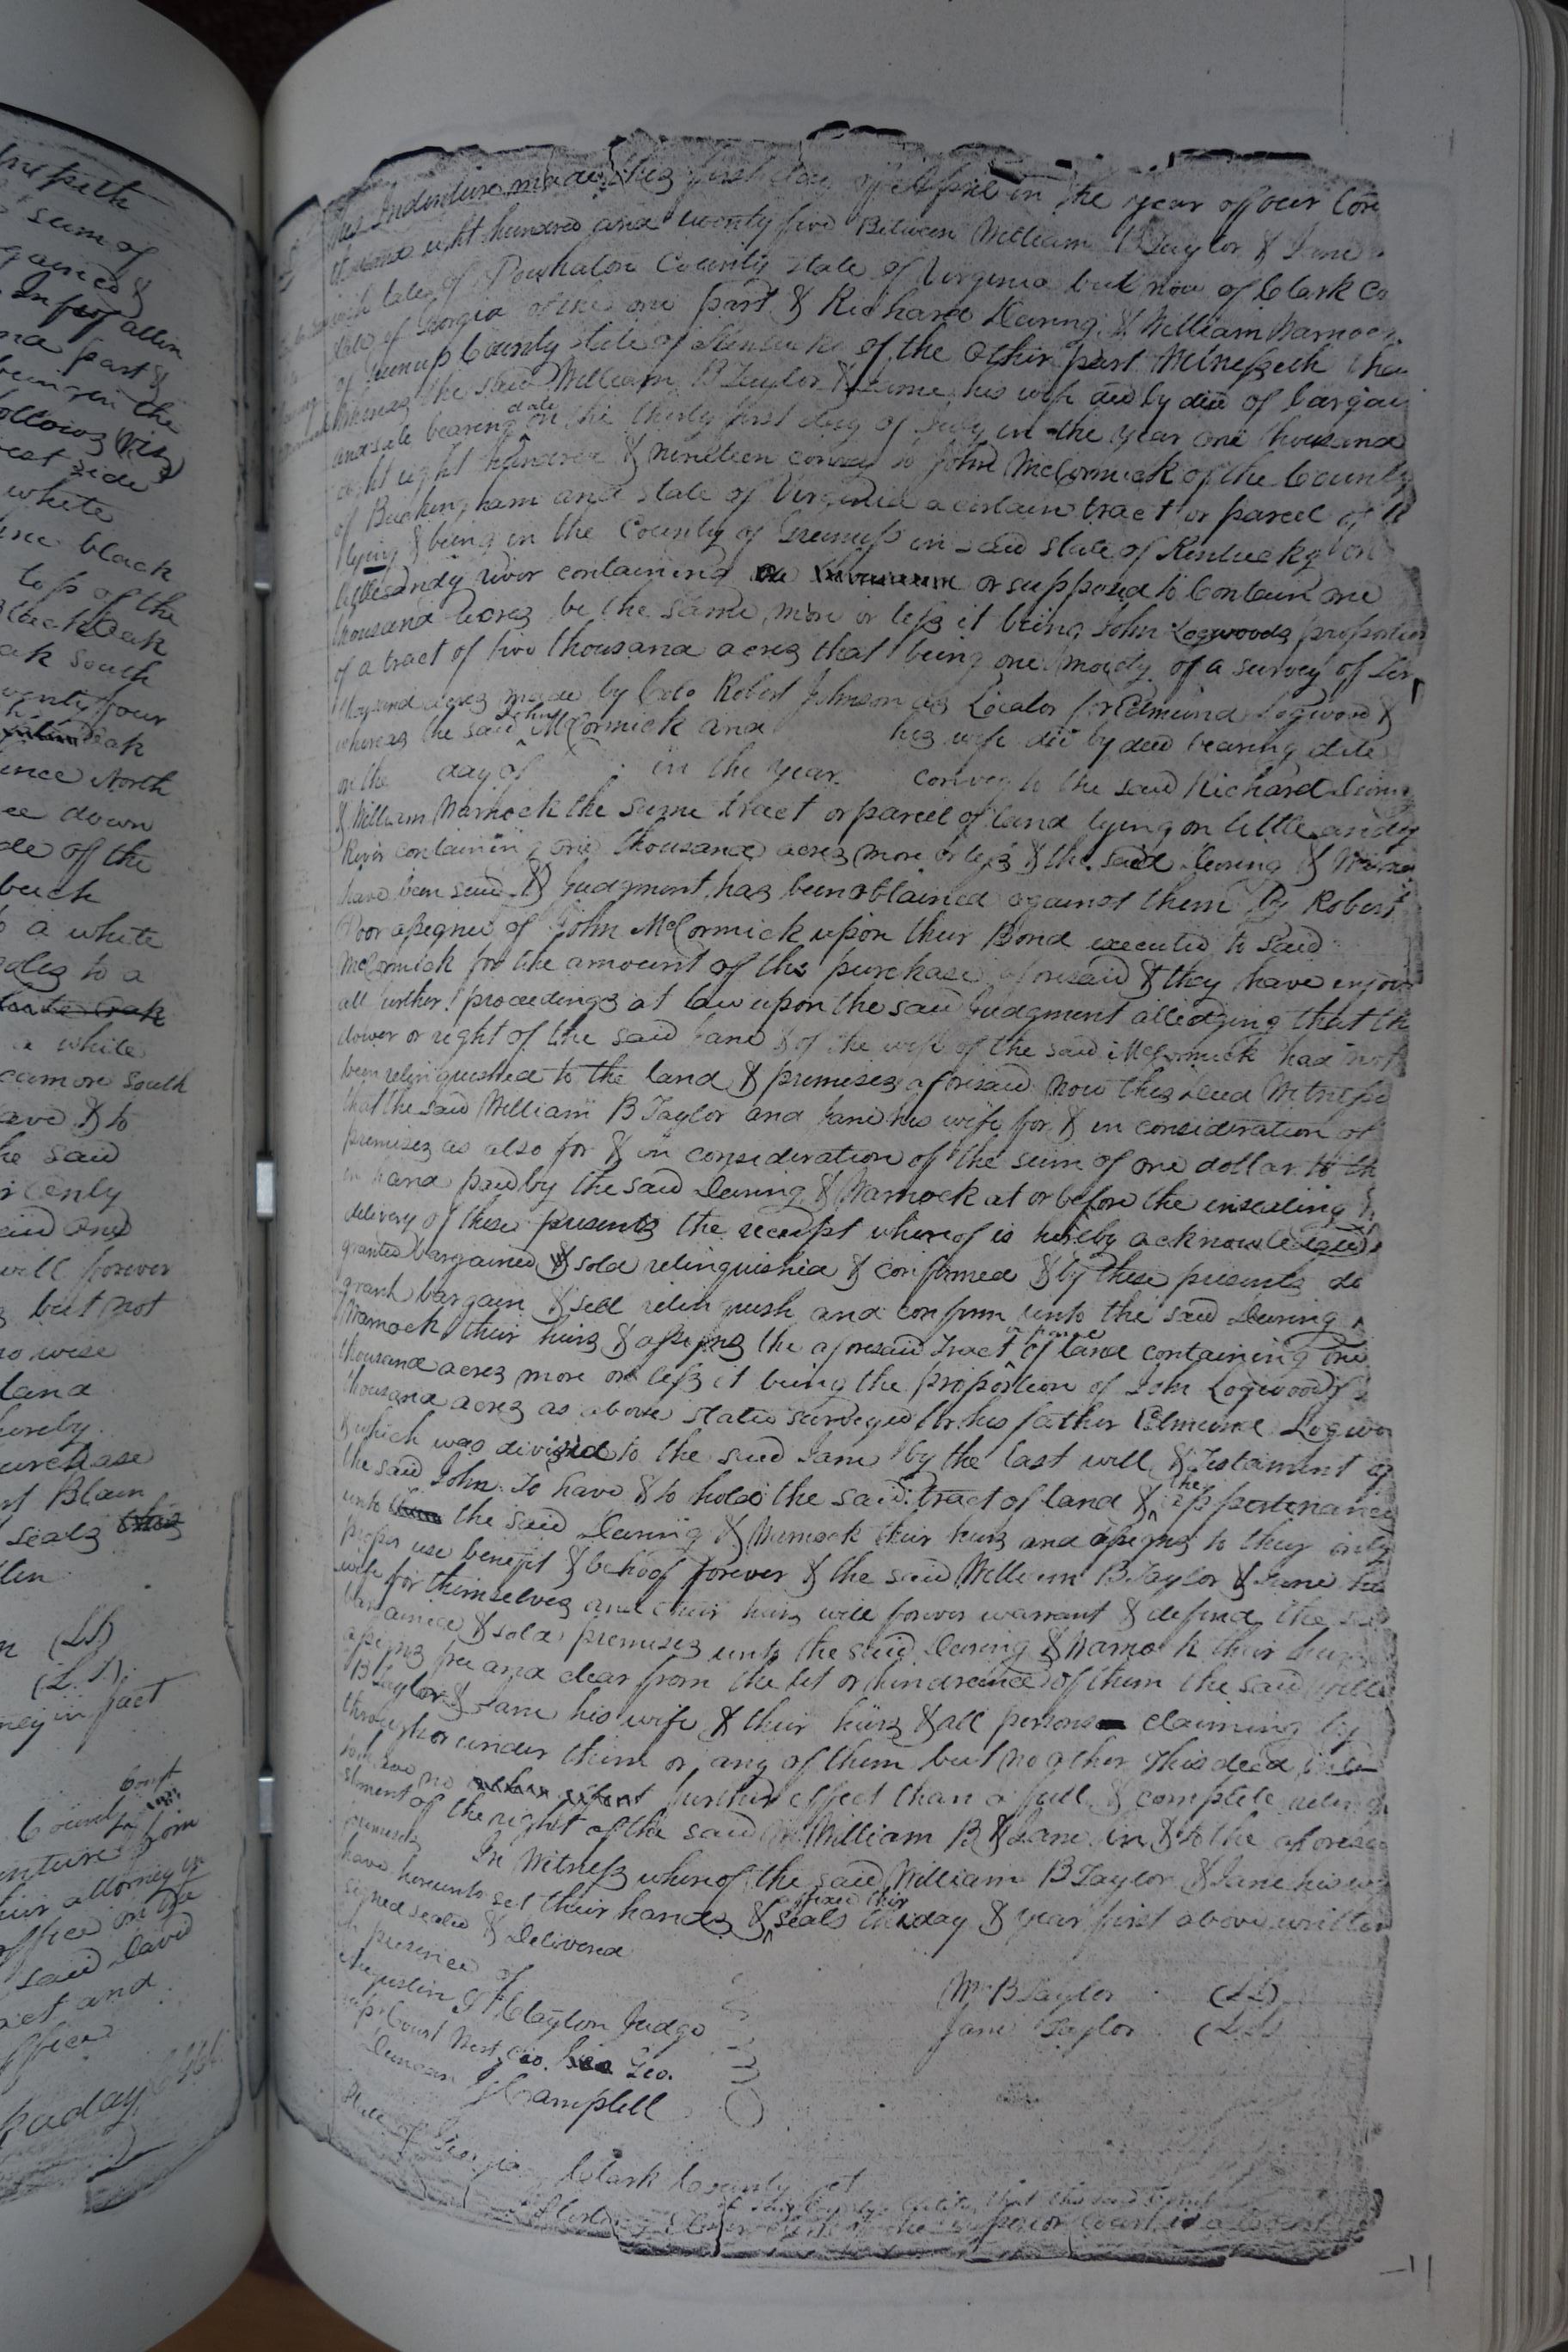 mepeth
sum of
gained &
In fact allen
and part &
being in the
follows (viz)
west side
white
ine black
tops of the
Black Oak
oak South
twenty four
oak
ence North
ee down
de of the
beech
to a white
poles to a
white oak
a white
camore South
have & to
he said
r only
said and
will forever
but not
no wise
land
hereby
purchase
Blain
seals this
(LS)
(L.S).
ney in fact
Court
County
enture from
their attorney in
office on the
said David
act and
office
paday
This Indenture made this first day of April in the year of our Lord
thousand eight hundred and twenty five Between William B Taylor & Jane
late of Powhatan County State of Virginia but now of Clark Co
State of Georgia of the one part & Richard Deering & William Warnock
of Greenup County State of Kentucky of the Other part Witnesseth that
Whereas the said William B Taylor & Jane his wife did by deed of bargain
and sale bearing date on the thirty first day of July in the year one thousand
eight hundred & nineteen convey to John McCormick of the County
of Buckingham and State of Virginia a certain tract or parcel of
lying & being in the County of Greenup in said State of Kentucky on
little sandy river containing or supposed to Contain one
thousand acres be the same more or less it being John Logwoods proportion
of a tract of five thousand acres that being one moiety of a survey of Ten
thousand acres made by Colo Robert Johnson as Locator for Edmund Logwood &
whereas the said John McCormick and his wife did by deed bearing date
on the day of in the year convey to the said Richard Deering
& William Warnock the same tract or parcel of land lying on little sandy
River containing one thousand acres more or less & the said Deering & Warnock
have been sued & Judgment has been obtained against them by Robert
Poor assignee of John McCormick upon their Bond executed to said
McCormick for the amount of the purchase aforesaid & they have enjoin
all further proceedings at law upon the said Judgment alledging that the
dower or right of the said Jane & of the wife of the said McCormick had not
been relinquished to the land & premises aforesaid now this deed Witnesse
that the said William B Taylor and Jane his wife for & in consideration of
premises as also for & in consideration of the sum of one dollar to th
in hand paid by the said Deering & Warnock at or before the ensealing &
delivery of these presents the receipt whereof is hereby acknowledged
granted bargained & sold relinquished & confirmed & by these presents do
grant bargain & sell relinquish and confirm unto the said Deering &
Warnock their heirs & assigns the aforesaid Tract or parcel of land containing one
thousand acres more or less it being the proportion of John Logwood of
thousand acres as above stated surveyed for his father Edmund Logwoo
& which was divised to the said Jane by the last will & Testament of
the said John. To have & to hold the said tract of land & the appertenances
unto the said Deering & Warnock their heirs and assigns to their only
proper use benefit & behoof forever & the said William B Taylor & Jane his
wife for themselves and their heirs will forever warrant & defend the said
bargained & sold premises unto the said Deering & Warnock their heirs
assigns free and clear from the let or hindreance of them the said Will
B Taylor & Jane his wife & their heirs & all persons claiming by
through or under them or any of them but no other this deed
to have no further effect than a full & complete relinqu
shment of the right of the said William B & Jane in & to the aforesd
premises In Witness whereof the said William B Taylor & Jane his wi
have hereunto set their hands & affixed their seals this day & year first above written
signed sealed & Delivered
in presence of
Augustin S Clayton Judge
Supr Court West Geo.
Duncan G Campbell
Wm B Taylor (LS)
Jane Taylor (LS)
State of Georgia Clark County